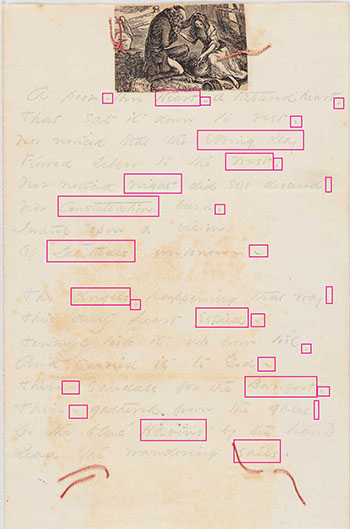 A poor - torn heart - a tattered heart,
That sat it down to rest -
Nor noticed that the Ebbing Day
Flowed silver to the West,
Nor noticed night did soft descend
Nor Constellation burn -
Intent upon a vision
Of Latitudes unknown -
The Angels, happening that way
This dusty heart espied -
Tenderly took it up from toil -
And carried it to God -
There - Sandals for the Barefoot -
There - gathered from the gales
Do the blue Havens by the hand
Lead the wandering Sails.